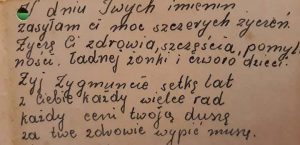 W dniu Twych imienin
zasyłam ci moc szczerych życzeń.
Życzę Ci zdrowia, szczęścia, pomyśl
ności, ładnej żonki i czworo dzieci.
Żyj Zygmuncie setkę lat
z ciebie każdy wielce rad
każdy ceni twoją duszę
za twe zdrowie wypić muszę.